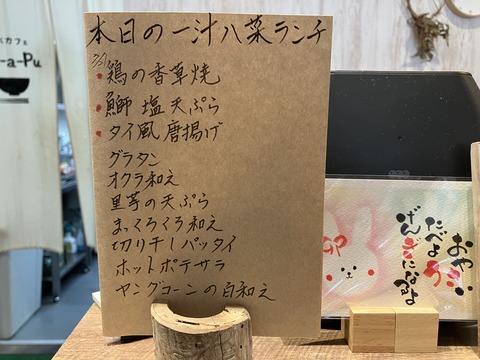 本日の一汁八菜ランチ
鶏の香草焼
鰤 塩天ぷら
タイ風 唐揚げ
グラタン
オクラ和え
里芋の天ぷら
まっくろくろ和え
切り干しパッタイ
ホットポテサラ
ヤングコーンの白和え
カフェ
-a-Pu
おやさい
たべよう
げんきになるよ